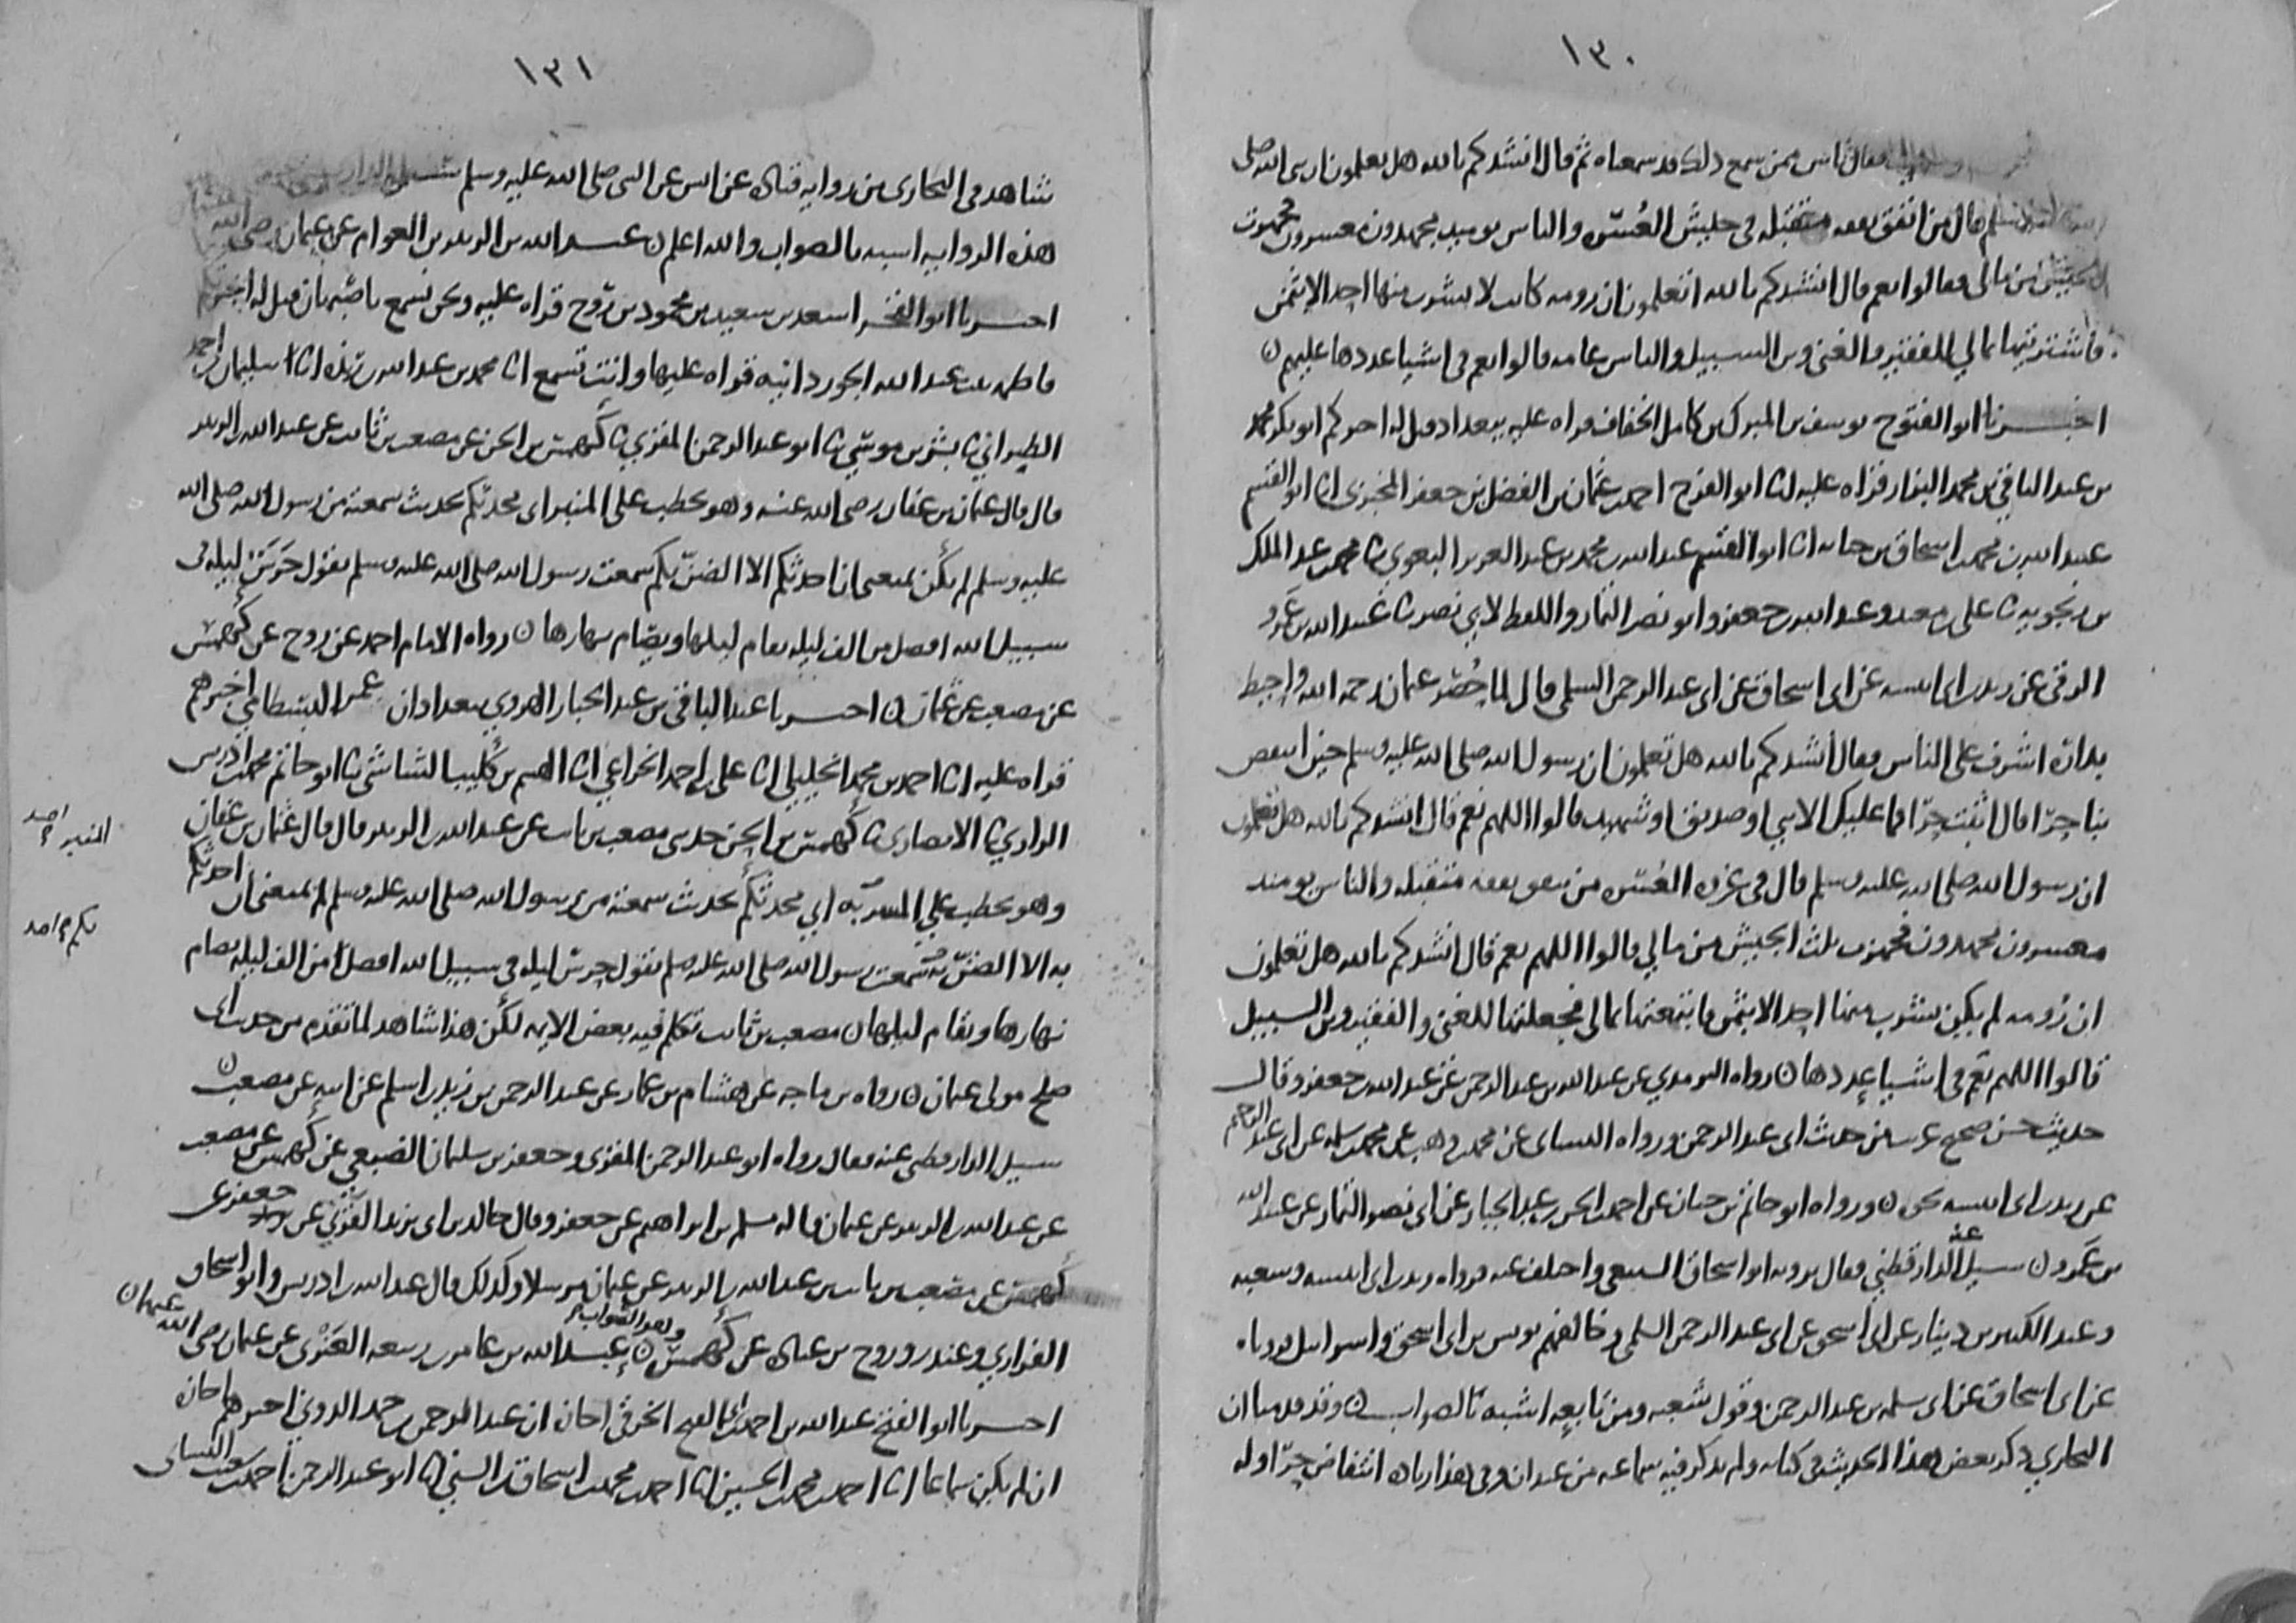 ١٣٠
فقال ناس ممن سمع ذلك قد سمعناه ثم قال انشدكم بالله هل تعلمون ان رسول الله صلى
الله عليه وسلم قال من انفق نفقة متقبلة في جيش العسرة والناس يوميد مجهدون معسرون فجهزت
الجيش من مالي فقالوا نعم قال انشدكم بالله اتعلمون ان رومة كانت لا يشرب منها احد الا بثمن
فاشتريتها بمالي للفقير والغني وبن السبيل والناس عامة قالوا نعم في اشيا عددها عليهم ن
اخبرنا ابو الفتوح يوسف بن المبرك بن كامل الخفاف قراه عليه ببغداد قيل له اخبركم ابو بكر محمد
بن عبد الباقي بن محمد البزار قراه عليه انا ابو الفرج احمد بن عثمان بن الفضل بن جعفر المخبزي انا ابو القسم
عبيد الله بن محمد بن اسحاق بن حبابه انا ابو القسم عبد الله بن محمد بن عبد العزيز البغوي نا محمد بن عبد الملك
بن زنجويه نا علي بن معبد وعبد الله بن جعفر وابو نصر التمار واللفظ لابي نصر نا عبيد الله بن عمرو
الرقي عن زيد بن ابي انيسه عن ابي اسحاق عن ابي عبد الرحمن السلمي قال لما حُصر عثمان رحمه الله واحيط
بداره اشرف على الناس فقال انشدكم بالله هل تعلمون ان رسول الله صلى الله عليه وسلم حين انتفض
بنا حرا قال اثبت حرا فما عليك الا نبي او صديق او شهيد قالوا اللهم نعم قال انشدكم بالله هل تعلمون
ان رسول الله صلى الله عليه وسلم قال في غزوه العُسرة من ينفق نفقه متقبله والناس يومئذ
معسرون مجهدون فجهزت ثلث الجيش من مالي قالوا اللهم نعم قال انشدكم بالله هل تعلمون
ان رُومه لم يكن يشرب منها احد الا بثمن فابتعتها بمالي فجعلتها للغني والفقير وبن السبيل
قالوا اللهم نعم في اشيا عددها ن رواه الترمدي عن عبد الله بن عبد الرحمن عن عبد الله بن جعفر وقال
حديث حسن صحيح غريب من حديث ابي عبد الرحمن ورواه النساى عن محمد بن وهب عن محمد بن سلمه عن ابي عبد الرحيم
عن زيد بن ابى انيسه نحوه ن ورواه ابو حاتم بن حبان عن احمد بن الحسن بن عبد الجبار عن ابي نصر التمار عن عبيد الله
بن عمرو ن سيل عنه الدارقطني فقال يرويه ابو اسحاق السبيعي واختلف عنه فرواه زيد بن ابى انيسه وشعبه
وعبد الكبير بن دينار عن ابى اسحق عن ابى عبد الرحمن السلمي وخالفهم يونس بن ابى اسحق واسرائيل فروياه
عن ابى اسحاق عن ابى سلمه بن عبد الرحمن وقول شعبه ومن تابعه اشبه بالصواب ن وقد قدمنا ان
البخاري ذكر بعض هذا الحديث في كتابه ولم يذكر فيه سماعه من عبدان وفي هذا زيادة انتفاض حرّا وله
١٣١
شاهد في البخاري من رواية قتادة عن انس عن النبى صلى الله عليه وسلم
هذه الروايه اشبه بالصواب والله اعلم ن عبد الله بن الزبير بن العوام عن عثمان رضي الله
اخبرنا ابو الفخر اسعد بن سعيد بن محمود بن روح قراه عليه ونحن نسمع باصبهان قيل له اخبرتكم
فاطمه بنت عبد الله الجوزدانيه قراه عليها وانت تسمع انا محمد بن عبد الله بن ريذه انا سليمان بن احمد
الطبراني نا بشر بن موسى نا ابو عبد الرحمن المقري نا كهمس بن الحسن عن مصعب بن ثابت عن عبد الله بن الزبير
قال قال عثمان بن عفان رضي الله عنه وهو يخطب على المنبر انى محدثكم بحديث سمعته من رسول الله صلى الله
عليه وسلم لم يكن يمنعني ان احدثكم الا الضنّ بكم سمعت رسول الله صلى الله عليه وسلم يقول حَرَسُ ليله في
سبيل الله افضل من الف ليله يقام ليلها ويصام نهارها ن رواه الامام احمد عن روح عن كهمس
عن مصعب عن عثمان ن اخبرنا عبد الباقي بن عبد الجبار الهروي ببغداد ان عمر البسطامي اخبرهم
قراه عليه انا احمد بن محمد الخليلي انا علي بن احمد الخزاعي انا الهيثم بن كليب الشاشي نا ابو حاتم محمد بن ادريس
الرازي نا الانصاري نا كهمس بن الحسن حدثني مصعب بن ثابت عن عبد الله بن الزبير قال قال عثمان بن عفان
وهو يخطب على المنبر اني محدثكم بحديث سمعته من رسول الله صلى الله عليه وسلم لم يمنعني ان احدثكم
به الا الضنّ سمعت رسول الله صلى الله عليه وسلم يقول حرس ليله في سبيل الله افضل من الف ليله يصام
نهارها ويقام ليلها ن مصعب بن ثابت تكلم فيه بعض الايمه لكن هذا شاهد لما تقدم من حديث ابى
صلح مولى عثمان ن رواه بن ماجه عن هشام بن عمار عن عبد الرحمن بن زيد بن اسلم عن ابيه عن مصعب ن
سيل الدارقطني عنه فقال رواه ابو عبد الرحمن المقري وجعفر بن سليمان الضبعي عن كهمس عن مصعب
عن عبد الله بن الزبير عن عثمان قاله مسلم بن ابراهيم عن جعفر وقال خالد بن ابى يزيد القرني عن جعفر عن
كهمس عن مصعب بن ثابت عن عبد الله بن الزبير عن عثمان مرسلا وكذلك قال عبد الله بن ادريس وابو اسحاق
الفزاري وغندر وروح بن عبادة عن كهمس وهو الصواب ن عبد الله بن عامر بن ربيعه العَنْزي عن عثمان رضي الله عنهما ن
اخبرنا ابو الفتح عبد الله بن احمد بن ابي الفتح الخرقي اجازة ان عبد الرحمن بن حمد الدوني اخبرهم اجازه
ان لم يكن سماعا انا احمد بن محمد بن الحسين انا احمد بن محمد بن اسحاق السني انا ابو عبد الرحمن احمد بن شعيب النساى
المنبر احمد
بكم احمد